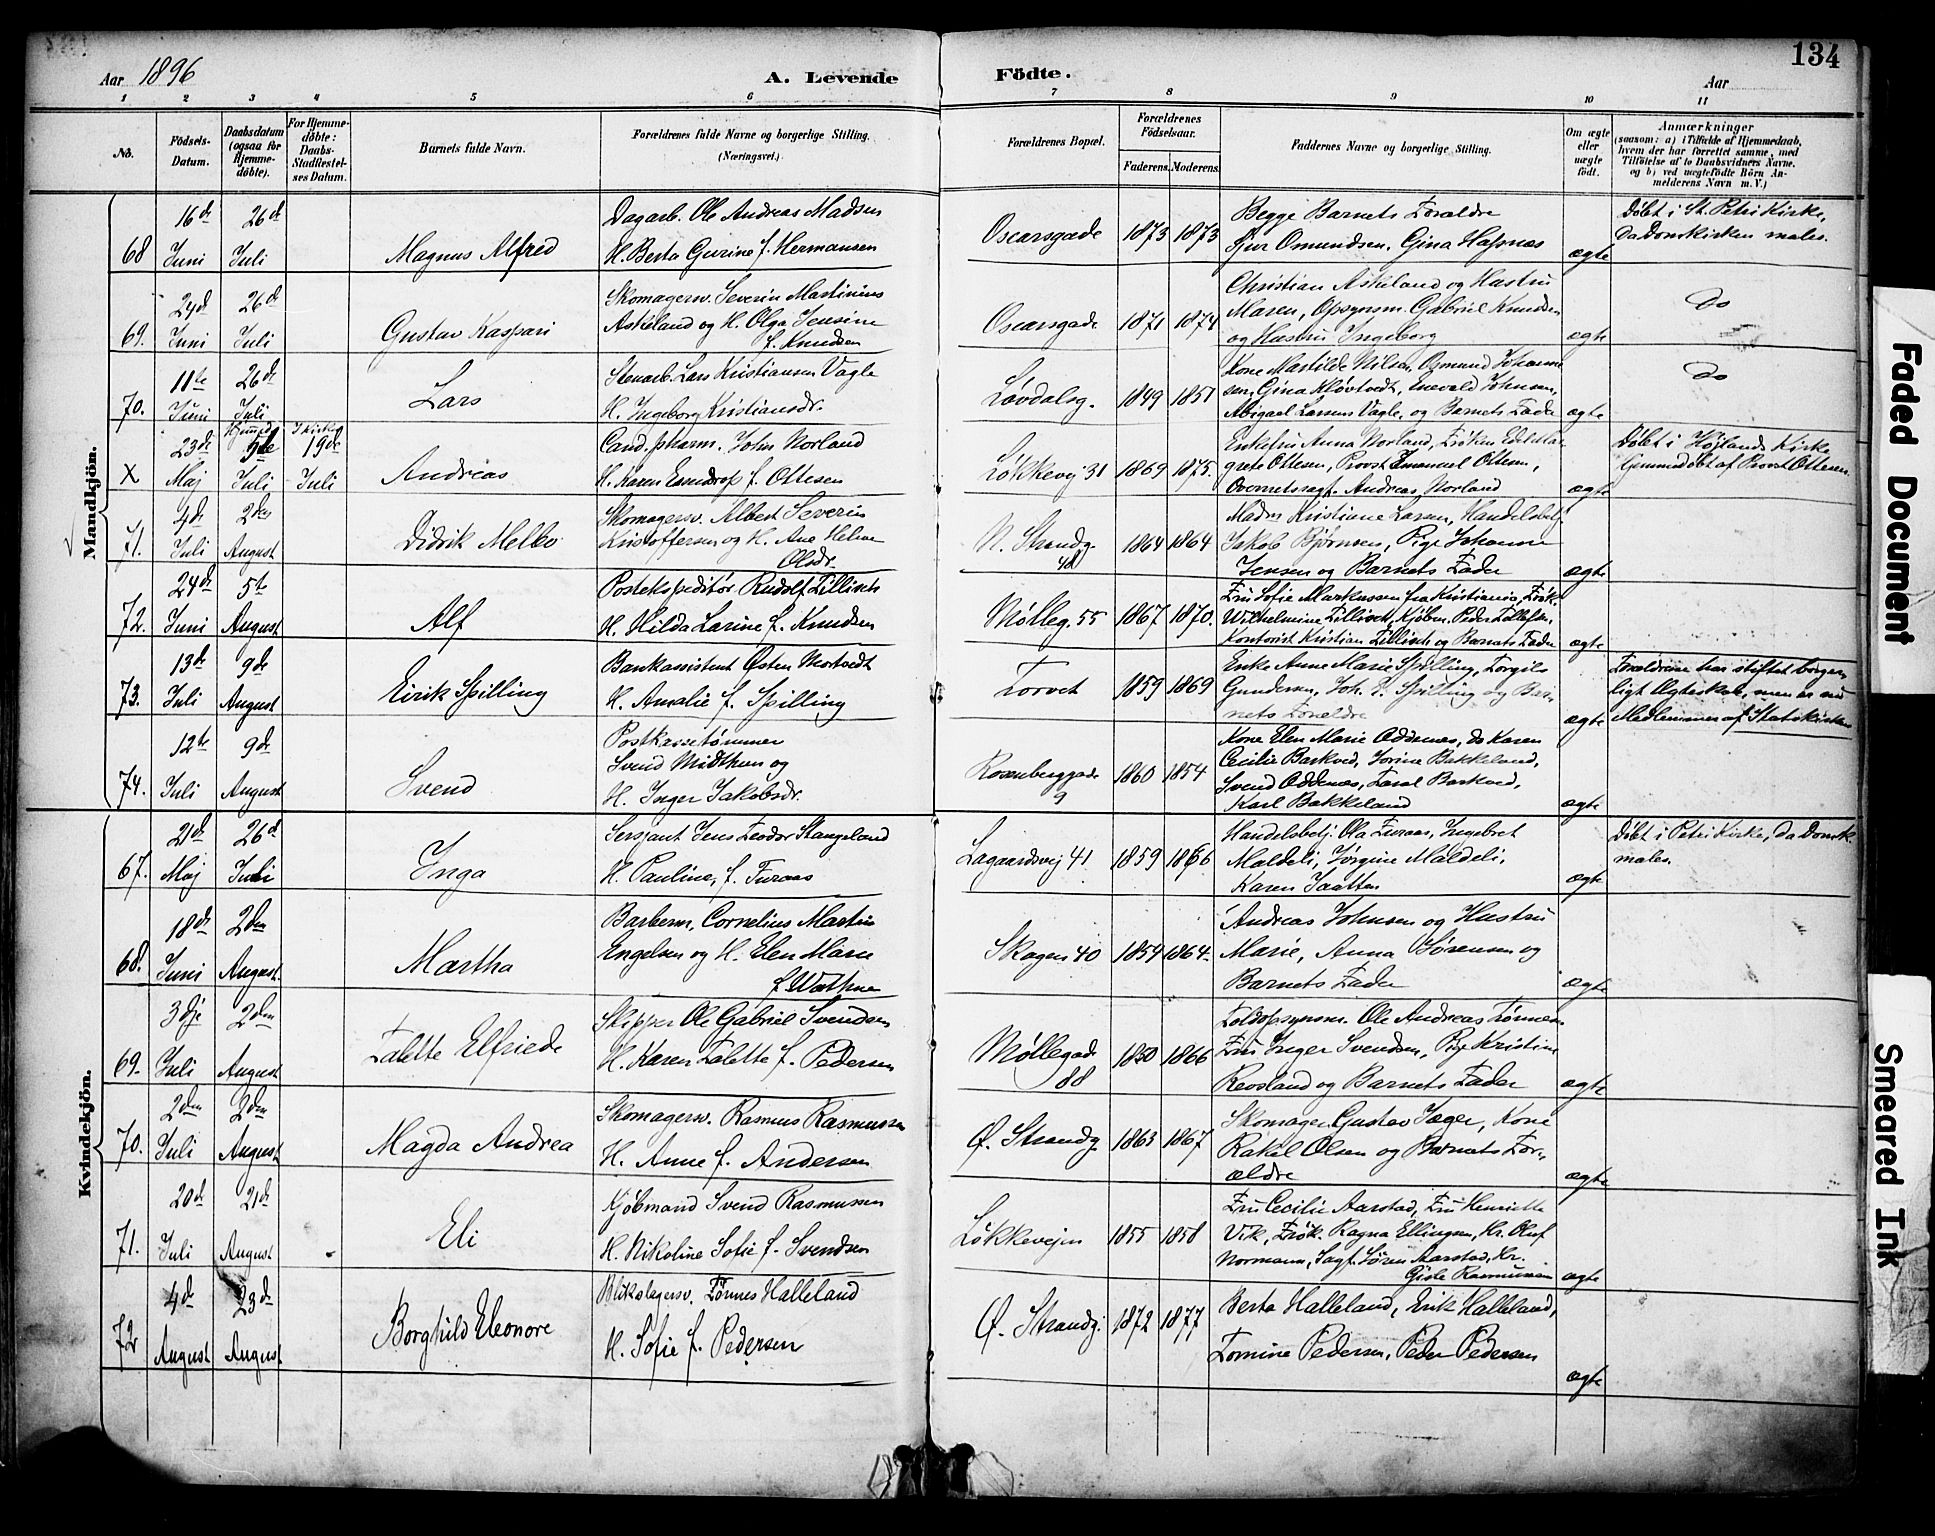 134
Aar 1896
A. Levende
Födte.
Aar
1 2 3 4 5 6 7 8 9 10 11
No.
Födsels-Datum.
Daabsdatum (ogsaa for Hjemme-döbte).
For Hjemme-döbte: Daabs-Stadfæstel-ses Datum.
Barnets fulde Navn.
Forældrenes fulde Navne og borgerlige Stilling. (Næringsvei.)
Forældrenes Bopæl.
Forældrenes Födselsaar.
Faderens. Moderens.
Faddernes Navne og borgerlige Stilling.
Om ægte eller uægte födt.
Anmærkninger
(saasom: a) i Tilfælde af Hjemmedaab,
hvem der har forrettet samme, med
Tilföielse af to Daabsvidners Navne.
og b) ved uægtefödte Börn An-
melderens Navn m. V.)
Mandkjön.
68 16de Juni 26de Juli
Magnus Alfred
Dagarb. Ole Andreas Madsen
H. Berta Gurine f. Hermansen
Oscarsgade 1873 1873
Begge Barnets Forældre
Sjur Omundsen, Gina
ægte
Døbt i St. Petri Kirke,
da Domkirken males.
69. 24de Juni 26de Juli
Gustav Kaspari
Skomagersv. Severin Martinius
Askeland og H. Olga Jensine
f. Knudsen
Oscarsgade 1871 1874
Christian Askeland og Hustru
Maren, Opsynsm. Gabriel Knudsen
og Hustru Ingeborg
ægte
Do
70. 11te Juni 26de Juli
Lars
Stenarb. Lars Kristiansen Vagle
H. Ingeborg Kristiansdr.
Løvdalsg. 1849 1851
Kone Matilde Nilsen, Osmund Johanne
sen, Gina Kløvtvedt, Enevald Johnsen,
Abigael Larsens Vagle, og Barnets Fader
ægte
Do
X 23de Maj Hjemmed. 5te Juli I Kirke 19de Juli
Andreas
Cand. pharm. John Norland
H. Karen Essendrop f. Ottesen
Løkkevej 31 1869 1875.
Enkefru Anna Norland, Frøken Edel Mar-
grete Ottesen, Provst Emanuel Ottesen,
Overretssagf. Andreas Norland
ægte
Døbt i Højlands Kirke
af Provst Ottesen
71. 4de Juli 2den August
Didrik Melbo
Skomagersv. Albert Severin
Kristoffersen og H. Ane Helene
Olsdr.
N. Strandg. 48 1864 1864
Madm Kristiane Larsen, Handelsbetj.
Jakob Bjørnsen, Pige Johanne
Jensen og Barnets Fader
ægte
72. 24de Juni 5te August
Alf
Postekspeditør Rudolf Zillisch
H. Hilda Larine f. Knudsen
Mølleg. 55 1867 1870.
Fru Sofie Markussen fra Kristiania, Frøk.
Wilhelmine Zillisch, Kjøbm. Peder Tollefsen,
Kontorist Kristian Zillisch og Barnets Fader
ægte
73. 13de Juli 9de August
Eirik Spilling
Bankassistent Østen Nertvedt
H. Amalie f. Spilling
Torvet 1859 1869
Enke Anne Marie Spilling, Torgils
Gundersen, Joh. S. Spilling og Bar-
nets Forældre
ægte
Forældrene har stiftet borger-
ligt Ægteskab, men er nu
Medlemmer af Statskirken
74. 12te Juli 9de August
Svend
Postkassetømmer
Svend Midthun og
H. Inger Jakobsdr.
Rosenberggade 9 1860 1854
Kone Elen Marie Oddenæs, do Karen
Cecilie Barkved, Jorine Bakkeland,
Svend Oddenæs, Taral Barkved,
Karl Bakkeland
ægte
Kvindekjön.
67. 21de Maj 26de Juli
Inga
Sersjant Jens Teodor Stangeland
H. Pauline, f. Furaas
Lagaardsvej 41 1859 1866
Handelsbetj. Ola Furaas, Ingebret
Maldeli, Jørgine Maldeli,
Karen Jaatten
ægte
Døbt i Petri Kirke, da Domk.
males.
68. 18de Juni 2den August
Martha
Barberm. Cornelius Martin
Engelsen og H. Elen Marie
f. Wathne
Skagen 40 1854 1864
Andreas Johnsen og Hustru
Marie, Anna Sørensen og
Barnets Fader
ægte
69. 3dje Juli 2den August
Talette Elfriede
Skipper Ole Gabriel Svendsen
H. Karen Talette f. Pedersen
Møllegade 88 1850 1866
Toldopsynsm. Ole Andreas Tønnesen
Fru Inger Svendsen, Pige Kristine
Revsland og Barnets Fader
ægte
70. 2den Juli 2den August
Magda Andrea
Skomagersv. Rasmus Rasmussen
H. Anne f. Andersen
Ø. Strandg. 1863 1867
Skomager Gustav Jæger, Kone
Rakel Olsen og Barnets For-
ældre
ægte
71. 20de Juli 21de August
Eli
Kjøbmand Svend Rasmussen
H. Nikoline Sofie f. Svendsen
Løkkevejen 1855 1858
Fru Cecilie Aarstad, Fru Henriette
Vik, Frøk. Ragna Ellingsen, Hr. Oluf
Normann, Sagf. Søren Aarstad, Hr.
Gisle Rasmussen
ægte
72 4de August 23de August
Borghild Eleonore
Blikslagersv. Tønnes Halleland
H. Sofie f. Pedersen
Ø. Strandg. 1872 1877
Berta Halleland, Erik Halleland,
Tomine Pedersen, Peder Pedersen
ægte
Faded Document
Smeared Ink